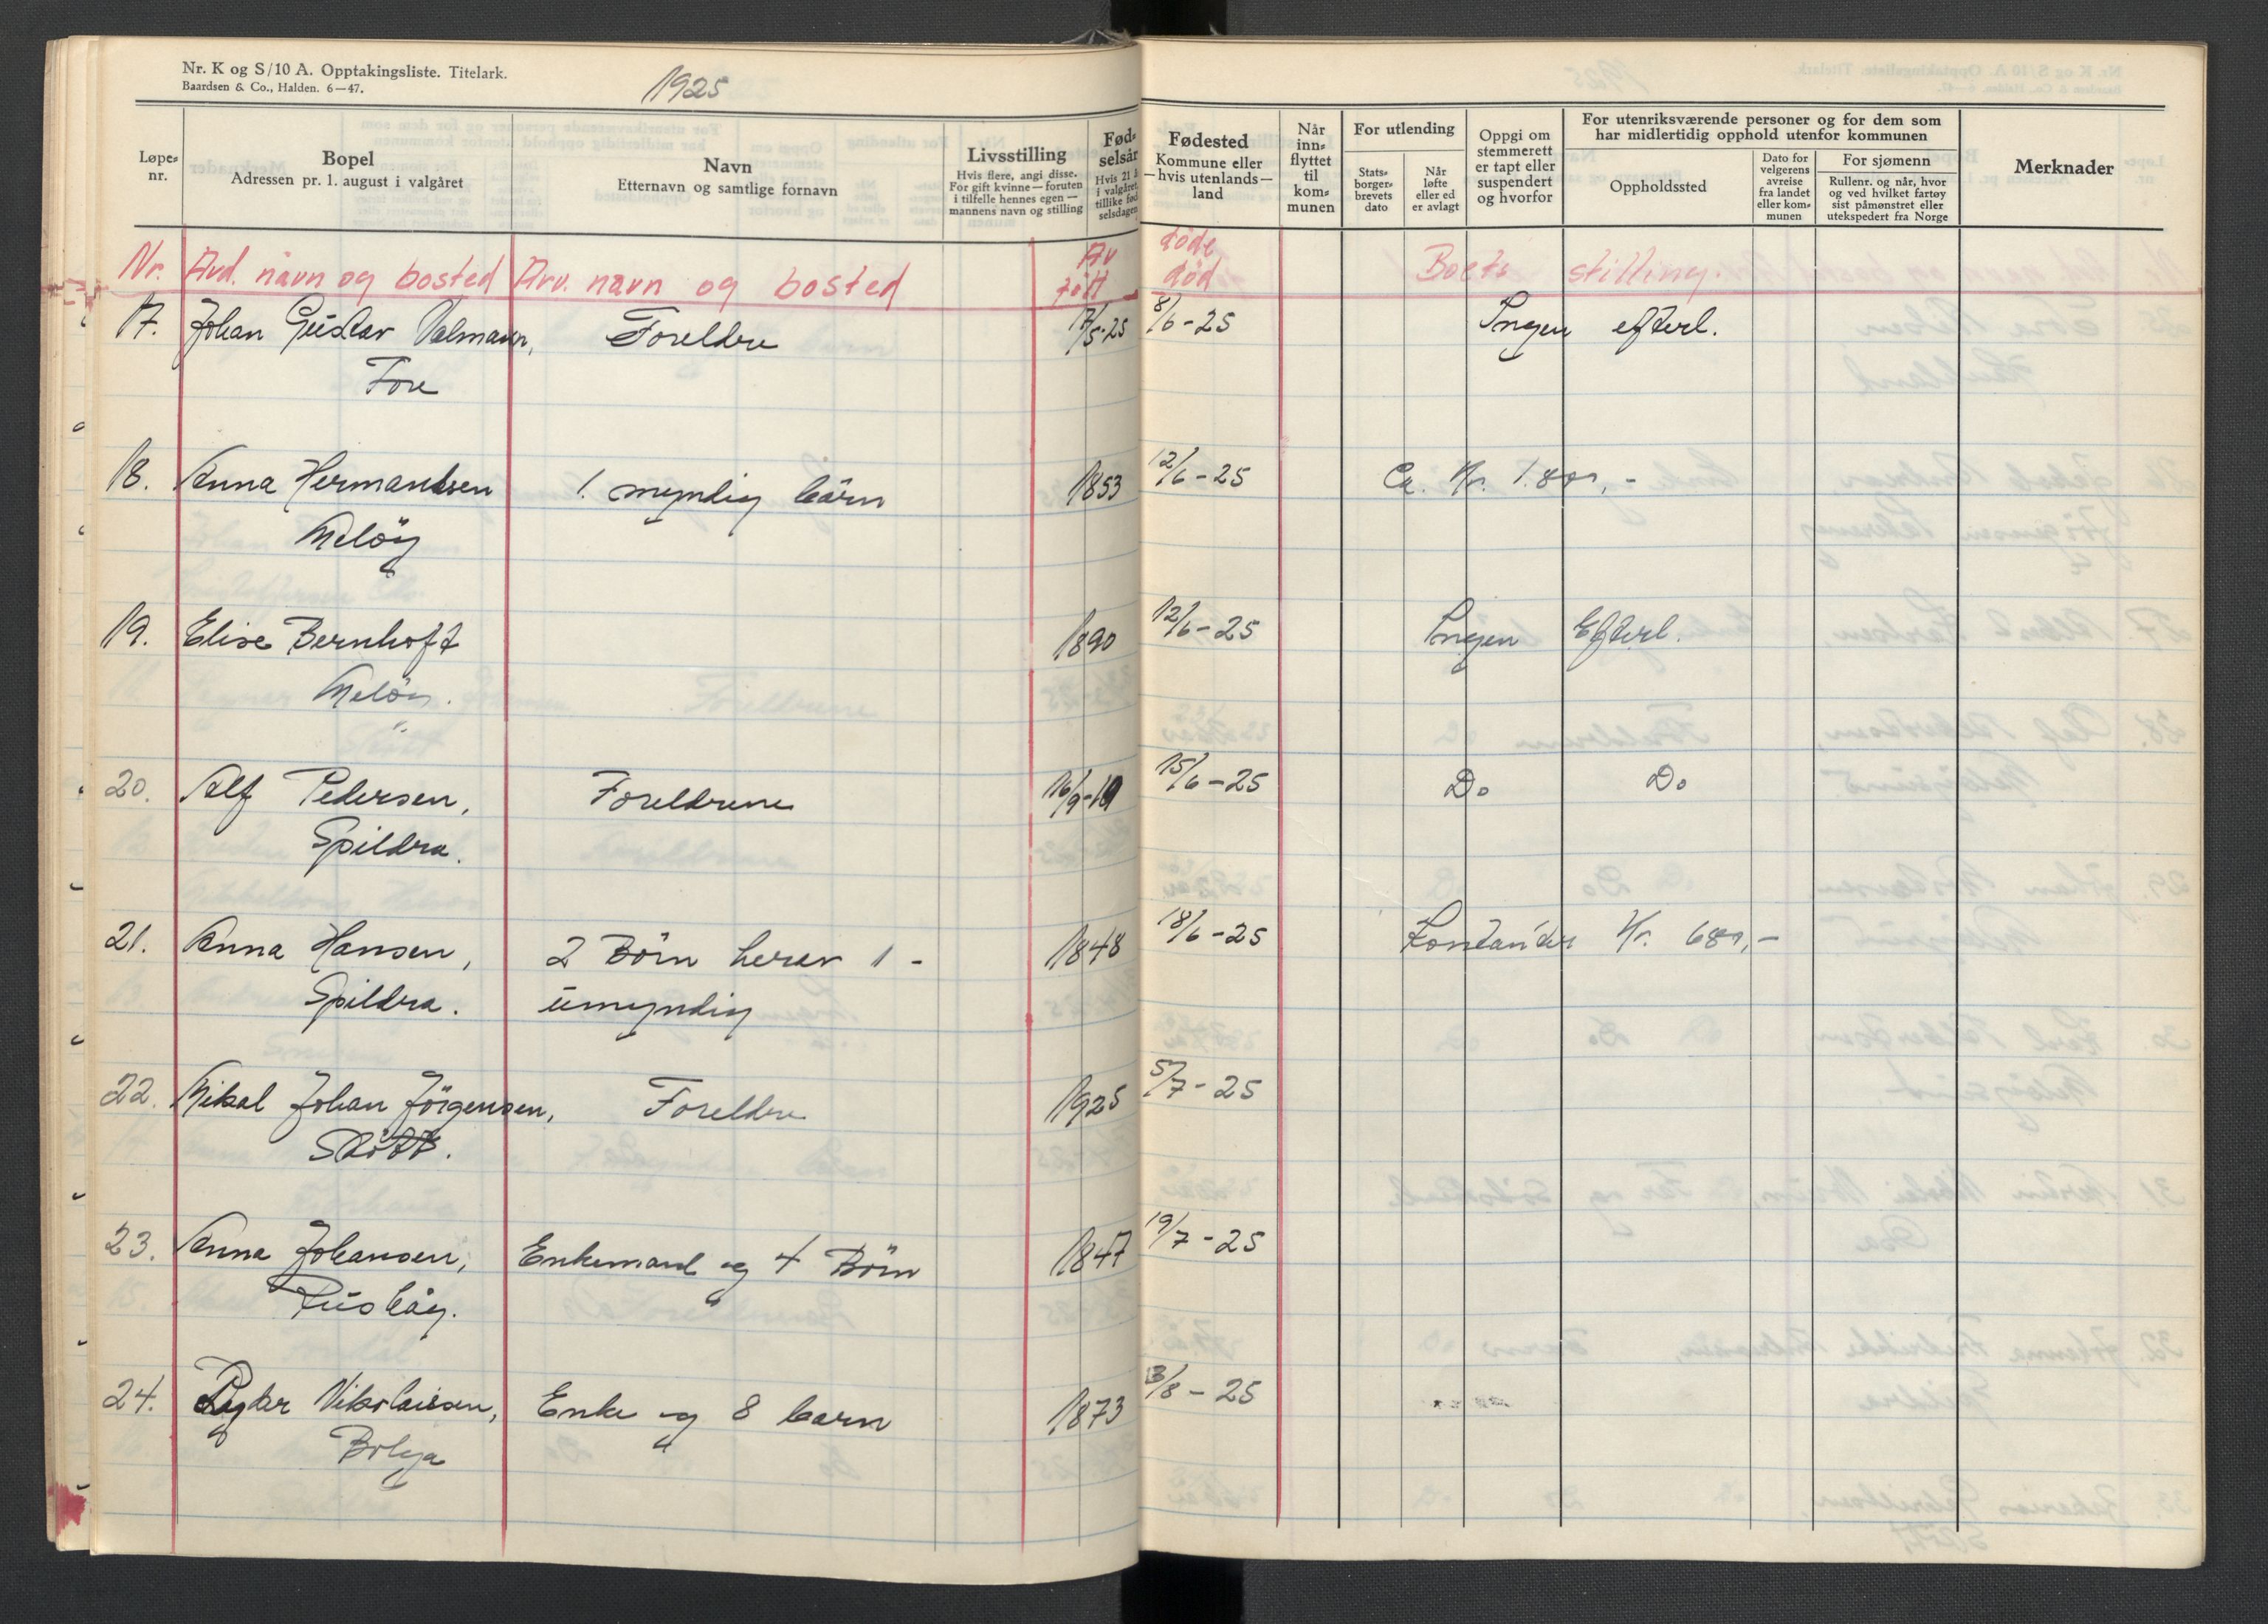 Nr. K og S/10 A. Opptakingsliste. Titelark.
Baardsen & Co., Halden. 6—47.
1925
Løpe-nr.
Bopel
Adressen pr. 1. august i valgåret
Navn
Etternavn og samtlige fornavn
Livsstilling
Hvis flere, angi disse.
For gift kvinne — foruten
i tilfelle hennes egen —
mannens navn og stilling
Fød-
selsår
Hvis 21 å
i valgåret,
tillike fød
selsdagen
Fødested
Kommune eller
— hvis utenlands —
land
Når
inn-
flyttet
til
kom-
munen
For utlending
Stats-
borger-
brevets
dato
Når
løfte
eller ed
er avlagt
Oppgi om
stemmerett
er tapt eller
suspendert
og hvorfor
For utenriksværende personer og for dem som
har midlertidig opphold utenfor kommunen
Oppholdssted
Dato for
velgerens
avreise
fra landet
eller kom-
munen
For sjømenn
Rullenr. og når, hvor
og ved hvilket fartøy
sist påmønstret eller
utekspedert fra Norge
Merknader
Av døde
Nr. Avd. navn og bosted Arv. navn og bosted født død Boets stilling.
17. Johan Gustav Valmann, Foreldre 17/5-25 8/6-25 Ingen efterl.
Fore
18. Anna Hermandsen 1 myndig barn 1853 12/6-25 Ca. Kr. 1.800,-
Meløy
19. Elise Bernhoft 1890 12/6-25 Ingen Efterl.
Meløy.
20. Alf Pedersen, Foreldrene 16/9-19 15/6-25 Do Do
Spildra.
21. Anna Hansen, 2 Börn herav 1 - 1848 18/6-25 Kontanter Kr. 680,-
Spildra. umyndig
22. Mikal Johan Jörgensen, Foreldre 1925 5/7-25
Støtt.
23. Anna Johansen, Enkemand og 4 Börn 1847 19/7-25
24. Nikolaisen, Enke og 8 barn 1873 3/8-25
Bolga